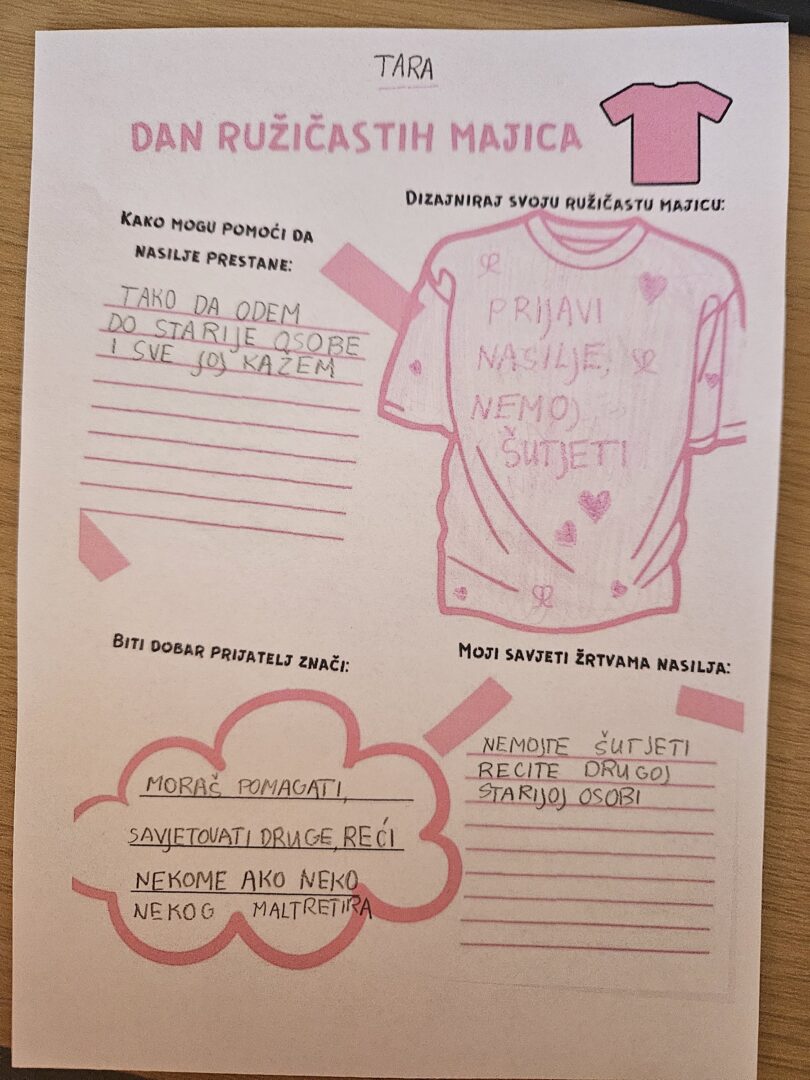 TARA
DAN RUŽIČASTIH MAJICA
KAKO MOGU POMOĆI DA
NASILJE PRESTANE:
TAKO DA ODEM
DO STARIJE OSOBE
I SVE JOJ KAŽEM
DIZAJNIRAJ SVOJU RUŽIČASTU MAJICU:
PRIJAVI
NASILJE,
NEMOJ
ŠUTJETI
BITI DOBAR PRIJATELJ ZNAČI:
MORAŠ POMAGATI,
SAVJETOVATI DRUGE, REĆI
NEKOME AKO NEKO
NEKOG MALTRETIRA
MOJI SAVJETI ŽRTVAMA NASILJA:
NEMOJTE ŠUTJETI
RECITE DRUGOJ
STARIJOJ OSOBI